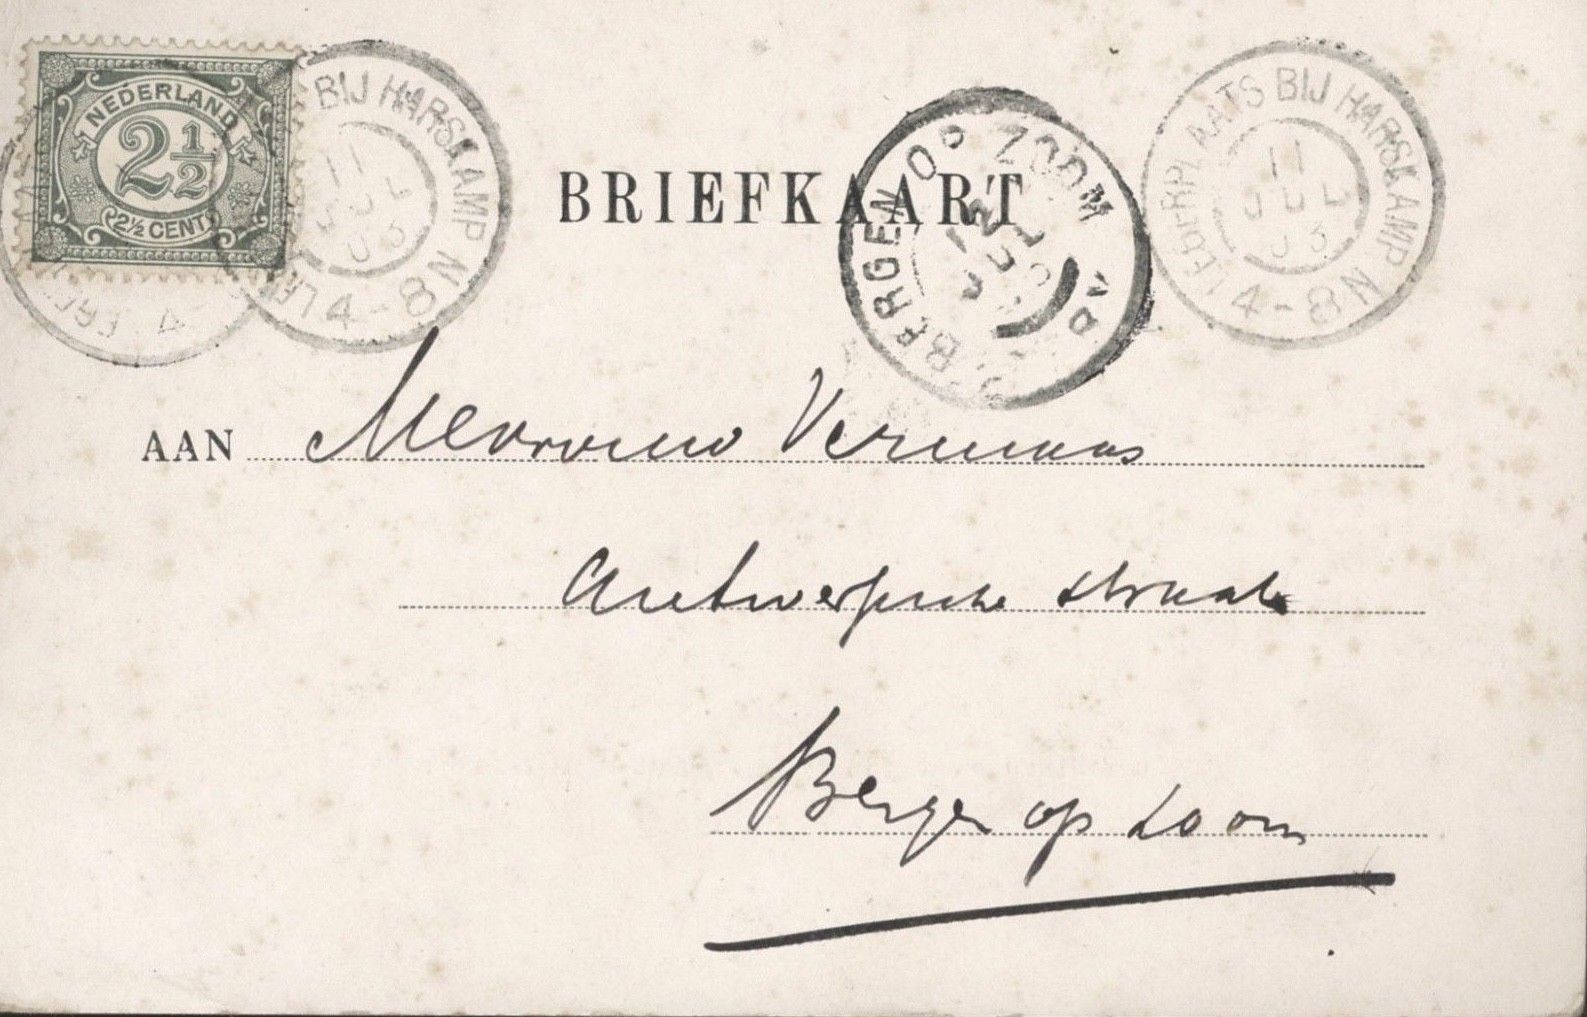 NEDERLAND
2½
2½ CENT
BIJ HARSKAMP
11
JUL
03
4-8 N
BRIEFKAART
BERGEN OP ZOOM
JUL
LEGERPLAATS BIJ HARSKAMP
11
JUL
03
4-8 N
AAN Mevrouw Vermaas
Antwerpsche straat
Bergen op Zoom